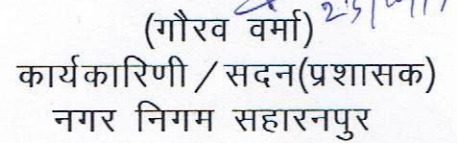 (गौरव वर्मा)
कार्यकारिणी / सदन(प्रशासक)
नगर निगम सहारनपुर